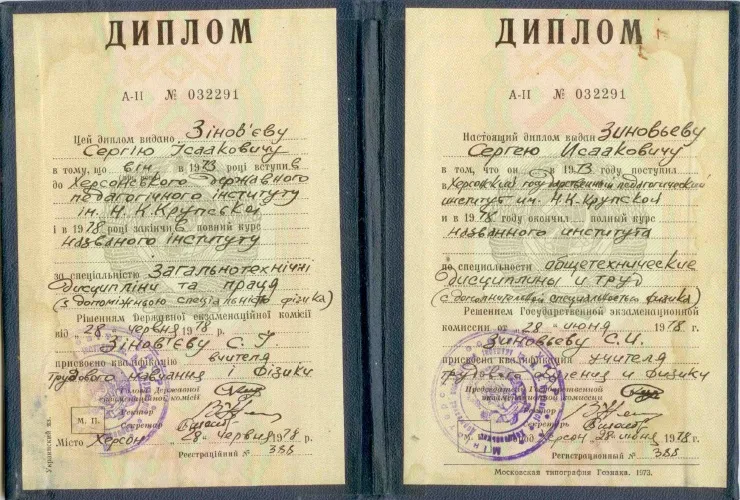 ДИПЛОМ
А-II № 032291
Цей диплом видано Зінов'єву
Сергію Ісааковичу
в тому, що він в 1973 році вступив
до Херсонського державного
педагогічного інституту
ім. Н.К.Крупської
і в 1978 році закінчив повний курс
названого інституту
за спеціальністю Загальнотехнічні
дисципліни та праця
(з допоміжною спеціальністю фізика)
Рішенням Державної екзаменаційної комісії
від „28" червня 1978 р.
Зінов'єву С. І.
присвоєно кваліфікацію вчителя
трудового навчання і фізики
Голова Державної
екзаменаційної комісії
Ректор
М. П.
Секретар
Місто Херсон „28" червня 1978 р.
Реєстраційний № 388
Украинский яз.
ДИПЛОМ
А-II № 032291
Настоящий диплом выдан Зиновьеву
Сергею Исааковичу
в том, что он в 1973 году поступил
в Херсонский государственный педагогический
институт им. Н.К.Крупской
и в 1978 году окончил полный курс
названного института
по специальности общетехнические
дисциплины и труд
(с дополнительной специальностью физика)
Решением Государственной экзаменационной
комиссии от „28" июня 1978 г.
Зиновьеву С.И.
присвоена квалификация учителя
трудового обучения и физики
Председатель Государственной
экзаменационной комиссии
Ректор
Секретарь
Херсон „28" июня 1978 г.
Регистрационный № 388
Московская типография Гознака. 1973.